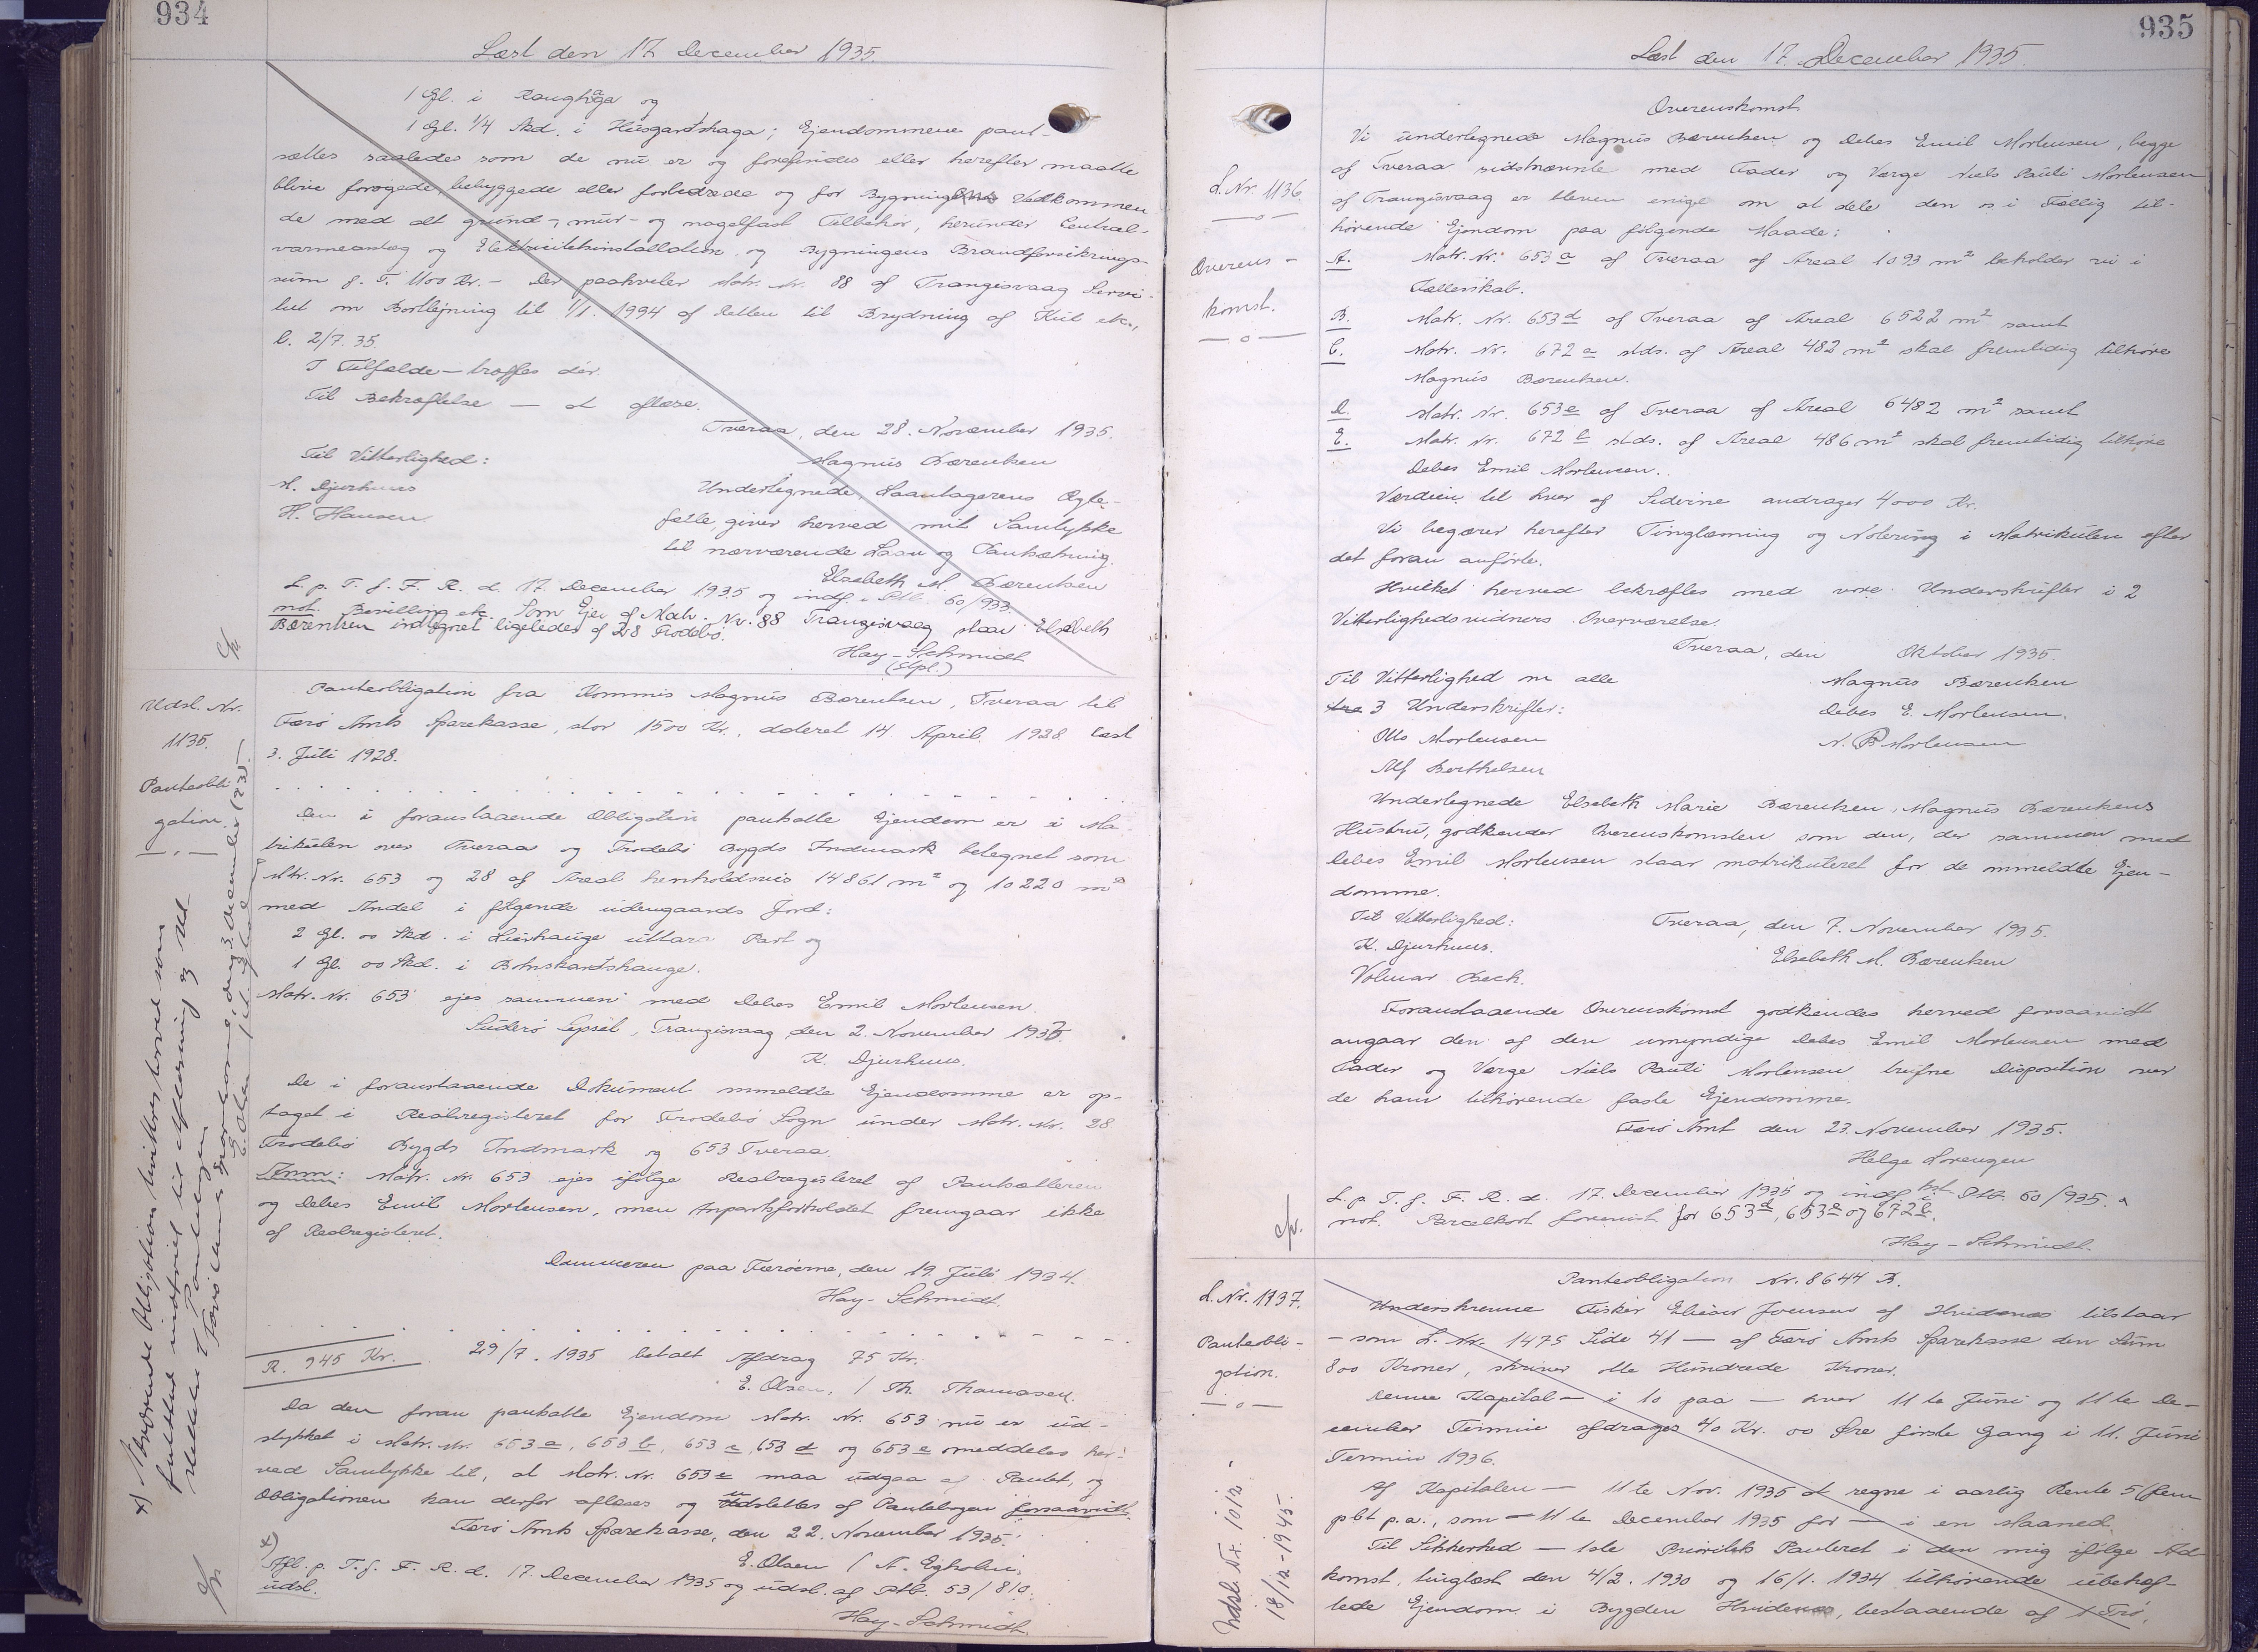 934
Læst den 17 December 1935.
1 Gl. i Raughaga og
1 Gl. 1/4 Skd. i Husgardshaga; Ejendommene pant-
sættes saaledes som de nu er og forefindes eller herefter maatte
blive forøgede, bebyggede eller forbedrede og for Bygningens Vedkommen
de med alt grund-, mur- og nagelfast Tilbehør, herunder Central-
varmeanlæg og Elektricitetsinstallation og Bygningens Brandforsikrings-
sum f. T. 1100 Kr. - Der paahviler Matr. Nr. 88 af Trangisvaag Servi-
tut om Bortlejning til 1/1. 1994 af Retten til Brydning af Kul etc.,
l. 2/7. 35.
I Tilfælde - træffes dér.
Til Bekræftelse — at aflæse.
Tveraa, den 28. November 1935.
Til Vitterlighed:
Magnus Bærentsen
M. Djurhuus
H. Hansen
Undertegnede, Laantagerens Ægte-
fælle, giver herved mit Samtykke
til nærværende Laan og Pantsætning.
Elsebeth M. Bærentsen
L. p. T. f. F. R. d. 17. December 1935 og indf. i Ptb. 60/933.
not. Bevilling etc. Som Ejer af Matr. Nr. 88 Trangisvaag staar Elsebeth
Bærentsen indtegnet ligeledes af 28 Frodebø.
Hay-Schmidt
(Stpl.)
Udsl. Nr.
1135.
Panteobli
gation.
Panteobligation fra Kommis Magnus Bærentsen, Tveraa til
Færø Amts Sparekasse, stor 1500 Kr., dateret 14 April 1928 læst
3. Juli 1928.
Den i foranstaaende Obligation pantsatte Ejendom er i Ma-
trikulen over Tveraa og Frodebø Bygds Indmark betegnet som
Mtr. Nr. 653 og 28 af Areal henholdsvis 14861 m² og 10220 m²
med Andel i følgende udengaards Jord:
2 Gl. 00 Skd. i Lidhauge uttara Part og
1 Gl. 00 Skd. i Botnskardshauge.
Matr. Nr. 653 ejes sammen med Debes Emil Mortensen.
Suderø Syssel, Trangisvaag, den 2. November 1933.
K. Djurhuus.
De i foranstaaende Dokument ommeldte Ejendomme er op-
taget i Realregisteret for Frodebø Sogn under Matr. Nr. 28
Frodebø Bygds Indmark og 653 Tveraa.
Anm: Matr. Nr. 653 ejes ifølge Realregisteret af Pantsætteren
og Debes Emil Mortensen, men Anpartsforholdet fremgaar ikke
af Realregisteret.
Dommeren paa Færøerne, den 19. Juli 1934.
Hay-Schmidt.
R. 945 Kr.
29/7. 1935 betalt Afdrag 75 Kr.
E. Olsen / Th. Thomasen.
Da den foran pantsatte Ejendom Matr. Nr. 653 nu er ud-
stykket i Matr. Nr. 653 a, 653 b, 653 c, 653 d og 653 e meddeles her-
ved Samtykke til, at Matr. Nr. 653 e maa udgaa af Pantet, og
Obligationen kan derfor aflæses og udslettes af Pantebogen forsaavidt.
Færø Amts Sparekasse, den 22. November 1935.
E. Olsen / A. Egholm.
x)
Afl. p. T. f. F. R. d. 17. December 1935 og udsl. af Ptb. 53/810.
udsl.
Hay-Schmidt.
x) Nærværende Obligation kvitteres herved som
fuldtud indfriet til Aflæsning og Ud-
slettelse af Pantebogen.
935
Læst den 17. December 1935.
Overenskomst.
L. Nr. 1136
Overens-
komst.
Vi undertegnede Magnus Bærentsen og Debes Emil Mortensen, begge
af Tveraa sidstnævnte med Fader og Værge Niels Pauli Mortensen
af Trangisvaag er bleven enige om at dele den os i Fællig til-
hørende Ejendom paa følgende Maade:
A. Matr. Nr. 653 a af Tveraa af Areal 1093 m² beholder vi i
Fællesskab.
B. Matr. Nr. 653 d af Tveraa af Areal 6522 m² samt
C. Matr. Nr. 672 a stds. af Areal 482 m² skal fremtidig tilhøre
Magnus Bærentsen.
D. Matr. Nr. 653 e af Tveraa af Areal 6482 m² samt
E. Matr. Nr. 672 b stds. af Areal 486 m² skal fremtidig tilhøre
Debes Emil Mortensen.
Værdien til hver af Siderne andrager 4000 Kr.
Vi begærer herefter Tinglæsning og Notering i Matrikulen efter
det foran anførte.
Hvilket herved bekræftes med vore Underskrifter i 2
Vitterlighedsvidners Overværelse.
Tveraa, den Oktober 1935.
Til Vitterlighed om alle
3 Underskrifter:
Magnus Bærentsen
Debes E. Mortensen.
Otto Mortensen
N. P. Mortensen
Alf Berthelsen
Undertegnede Elsebeth Marie Bærentsen, Magnus Bærentsens
Hustru, godkender Overenskomsten som den, der sammen med
Debes Emil Mortensen staar matrikuleret for de ommeldte Ejen-
domme.
Til Vitterlighed:
Tveraa, den 7. November 1935.
K. Djurhuus.
Elsebeth M. Bærentsen
Volmar Beck.
Foranstaaende Overenskomst godkendes herved forsaavidt
angaar den af den umyndige Debes Emil Mortensen med
Fader og Værge Niels Pauli Mortensen trufne Disposition over
de ham tilhørende faste Ejendomme.
Færø Amt den 23. November 1935.
Helge Lorenzen
L. p. T. f. F. R. d. 17. December 1935 og indf. i Ptb. 60/935.
not. Parcelkort forevist for 653 d, 653 e og 672 b.
Hay-Schmidt.
L. Nr. 1137.
Panteobli-
gation.
Panteobligation Nr. 8644 B.
Underskrevne Fisker Elieser Joensen af Hvidenæs tilstaar
- som L. Nr. 1475 Side 41 — af Færø Amts Sparekasse den Sum
800 Kroner, skriver otte Hundrede Kroner.
Denne Kapital — i 10 paa — hver 11te Juni og 11te De-
cember Termin afdrages 40 Kr. 00 Øre første Gang i 11. Juni
Termin 1936.
Af Kapitalen — 11te Nov. 1935 at regne i aarlig Rente 5 (fem
pCt p.a., som — 11te December 1935 for — i en Maaned.
Til Sikkerhed — 1ste Prioritets Panteret i den mig ifølge Ad-
komst, tinglæst den 4/2. 1930 og 16/1. 1934 tilhørende ubehæf-
tede Ejendom i Bygden Hvidenæs, bestaaende af
Udsl. Nr. 1012.
18/12-1945.